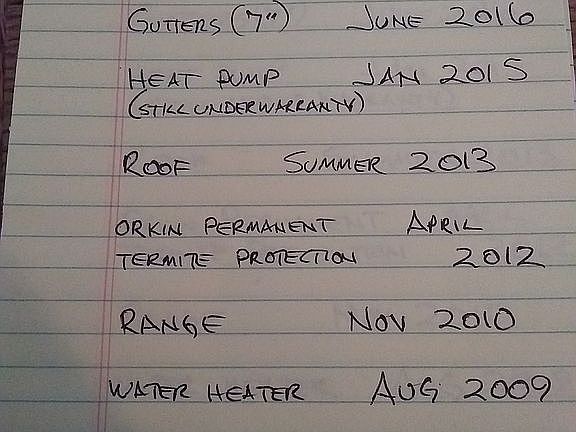 GUTTERS (7") JUNE 2016
HEAT PUMP JAN 2015
(STILL UNDER WARRANTY)
ROOF SUMMER 2013
ORKIN PERMANENT APRIL
TERMITE PROTECTION 2012
RANGE NOV 2010
WATER HEATER AUG 2009